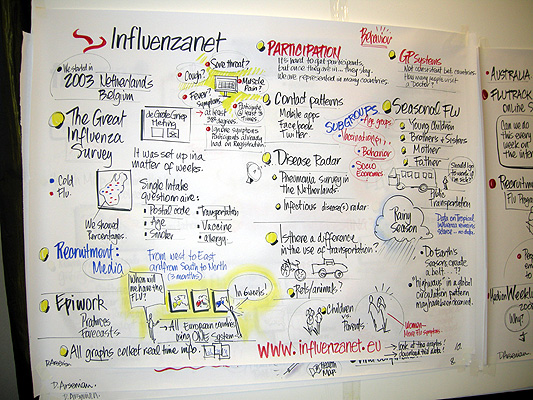 Influenzanet
We started in
2003 Netherlands
Belgium
Sore throat?
Cough?
Muscle
Pain?
Fever?
Symptoms
at least
The Great
Influenza
Survey
de Grote Griep
Meting
It was set up in a
matter of weeks.
Cold
Flu.
Single Intake
questionnaire:
Postal code
Transportation
Age
Vaccine
Smoker
allergy.
We showed
Percentages.
Recruitment:
Media
From west to East
and from South to North
(3 months)
When will
we have the
FLU?
In 6 weeks!
Epiwork
Produces
Forecasts
All European countries
using one System
All graphs collect real time info.
PARTICIPATION
It's hard to get participants,
but once they are in... they stay.
We are represented in many countries.
Behavior
GP systems
Not consistent bet. countries.
How many people visit
a Doctor?
Contact patterns
Mobile apps
Facebook
Twitter
SUBGROUPS
Age groups
Vaccination
Behavior
Socio
Economics
Seasonal FLU
Young Children
Brothers & Sisters
Mother
Father
Should I go
to work if
I'm sick?
Public
Transportation
Disease Radar
Pneumonia survey in
the Netherlands.
Infectious disease(s) radar
Rainy
Season
Data on Tropical
Is there a difference
in the use of transportation?
Do Earth's
Seasons create
a belt ... ??
"highways" in a global
circulation pattern
may have been occurred.
Pets/animals?
Children
Parents
Women
More Flu symptoms
www.influenzanet.eu
look at the graphs!
download the data!
D. Arseman.
D. Arseman.
AUSTRALIA
FLUTRACK
online S
Can we do
this every
week on
the inter
Recruitm
Flu Progra
Weekly
Why?
D. Arseman